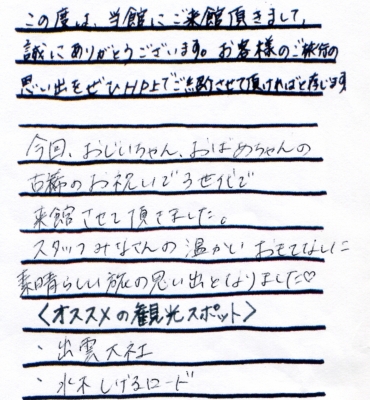 この度は、当館にご来館頂きまして、
誠にありがとうございます。お客様のご旅行の
思い出をぜひHP上でご紹介させて頂ければと存じます
今回、おじいちゃん、おばあちゃんの
古稀のお祝いで3世代で
来館させて頂きました。
スタッフみなさんの温かいおもてなしに
素晴らしい旅の思い出となりました♡
〈オススメの観光スポット〉
・出雲大社
・水木しげるロード